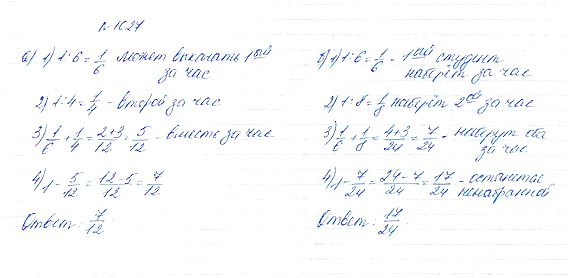 №1027
а) 1) 1:6 = 1/6 может выкачать 1ый
за час
2) 1:4 = 1/4 - второй за час
3) 1/6 + 1/4 = 2+3/12 = 5/12 - вместе за час
4) 1 - 5/12 = 12-5/12 = 7/12
Ответ: 7/12.
б) 1) 1:6 = 1/6 - 1ый студент
наберёт за час
2) 1:8 = 1/8 наберёт 2ой за час
3) 1/6 + 1/8 = 4+3/24 = 7/24 - наберут оба
за час
4) 1 - 7/24 = 24-7/24 = 17/24 - останется
ненабранной
Ответ: 17/24.